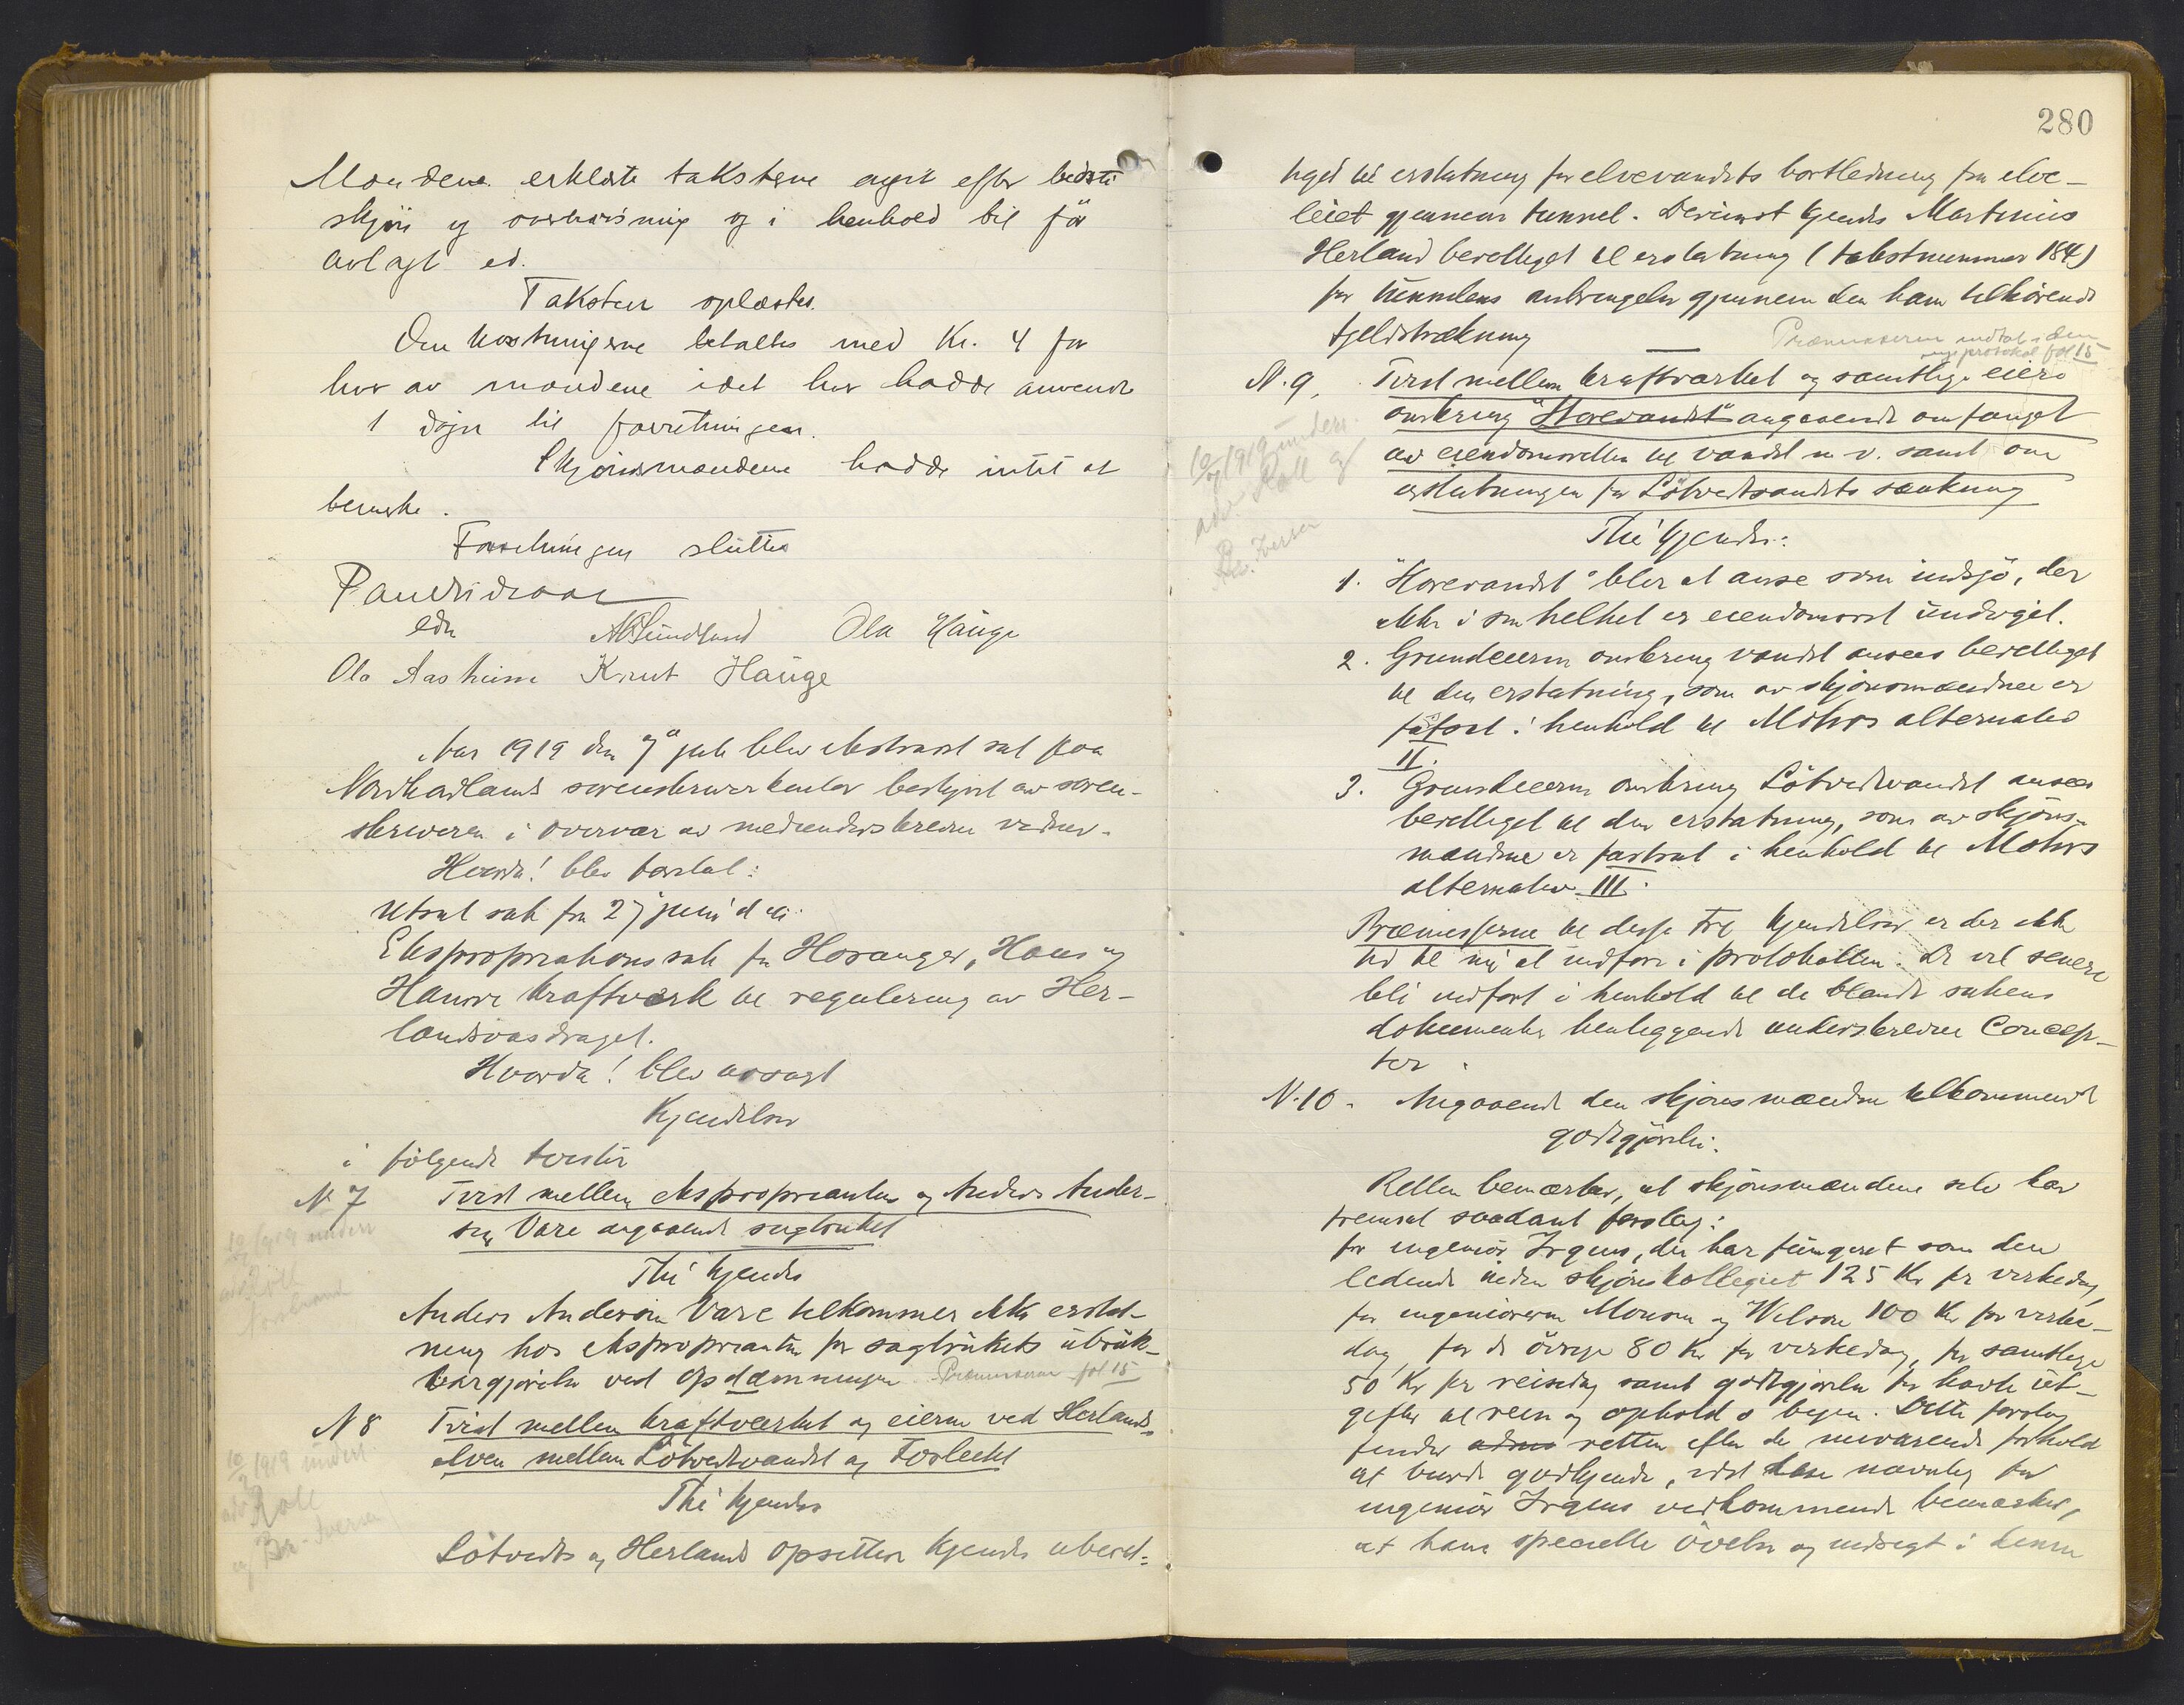 Mændene erklærte takstene avgit efter bedste
skjøn og overbevisning og i henhold til før
avlagt ed.
Taksten oplæstes.
Omkostningerne betaltes med Kr. 4 for
hver av mændene idet hver hadde anvendt
1 døgn til forretningen.
Skjønsmændene hadde intet at
bemerke.
Forretningen sluttes
edsv Ola Hauge
Ola Aasheim Knut Hauge
Aar 1919 den 7de juli blev ekstraret sat paa
Nordhordlands sorenskriverkontor bestyret av soren-
skriveren i overvær av medunderskrevne vidner.
Hvorda! blev foretat:
Utsat sak fra 27 juni d.a.:
Ekspropriationssak fra Hosanger, Haus og
Hamre kraftværk til regulering av Her-
landsvasdraget.
Hvorda! blev avsagt
Kjendelser
i følgende tvister
N 7 Tvist mellem ekspropriantene og Anders Ander-
sen Vare angaaende sagbruket
10/7 1919 underr
Thi kjendes
Anders Andersen Vare tilkommer ikke erstat-
ning hos ekspropriantene for sagbrukets ubruk-
bargjørelse ved opdæmningen. Præmisserne fol 15
N 8 Tvist mellem kraftværket og eierne ved Herlands-
elven mellem Løtvedtvandet og Fosleitet
10/7 1919 underr
adv Roll
og Br. Iversen
Thi kjendes
Løtvedts og Herlands opsittere kjendes uberet-
280
tiget til erstatning for elvevandets bortledning fra elve-
leiet gjennem tunnel. Derimot kjendes Martinus
Herland berettiget til erstatning (takstnummer 184)
for tunnelens anbringelse gjennem den ham tilhørende
fjeldstrækning
Præmisserne indtat i den
nye protokol fol 15
N. 9. Tvist mellem kraftværket og samtlige eiere
omkring "Storevandet" angaaende omfanget
av eiendomsretten til vandet m.v. samt om
erstatningen for Løtvedtvandets sænkning
10/7 1919 underr
adv. Roll og
Br. Iversen
Thi kjendes:
1. "Storevandet" blir at anse som indsjø, der
ikke i sin helhet er eiendomsret undergit.
2. Grundeierne omkring vandet ansees berettiget
til den erstatning, som av skjønsmændene er
fastsat i henhold til Mohrs alternativ
II.
3. Grundeierne omkring Løtvedtvandet ansees
berettiget til den erstatning, som av skjøns-
mændene er fastsat i henhold til Mohrs
alternativ III.
Præmisserne til disse tre kjendelser er der ikke
tid til nu at indføre i protokollen. De vil senere
bli indført i henhold til de blandt sakens
dokumenter henliggende underskrevne Concep-
ter.
N. 10. Angaaende den skjønsmændene tilkommende
godtgjørelse.
Retten bemærker, at skjønsmændene selv har
fremsat saadant forslag:
for ingeniør Irgens, der har fungeret som den
ledende inden skjønskollegiet 125 Kr pr virkedag,
for ingeniørerne Monsen og Wilson 100 Kr pr virke-
dag, for de øvrige 80 Kr pr virkedag, for samtlige
50 Kr pr reisedag samt godtgjørelse for havte ut-
gifter til reise og ophold i byen. Dette forslag
finder retten efter de nuværende forhold
at burde godkjende, idet navnlig for
ingeniør Irgens vedkommende bemærkes,
at hans specielle øvelse og indsigt i denne